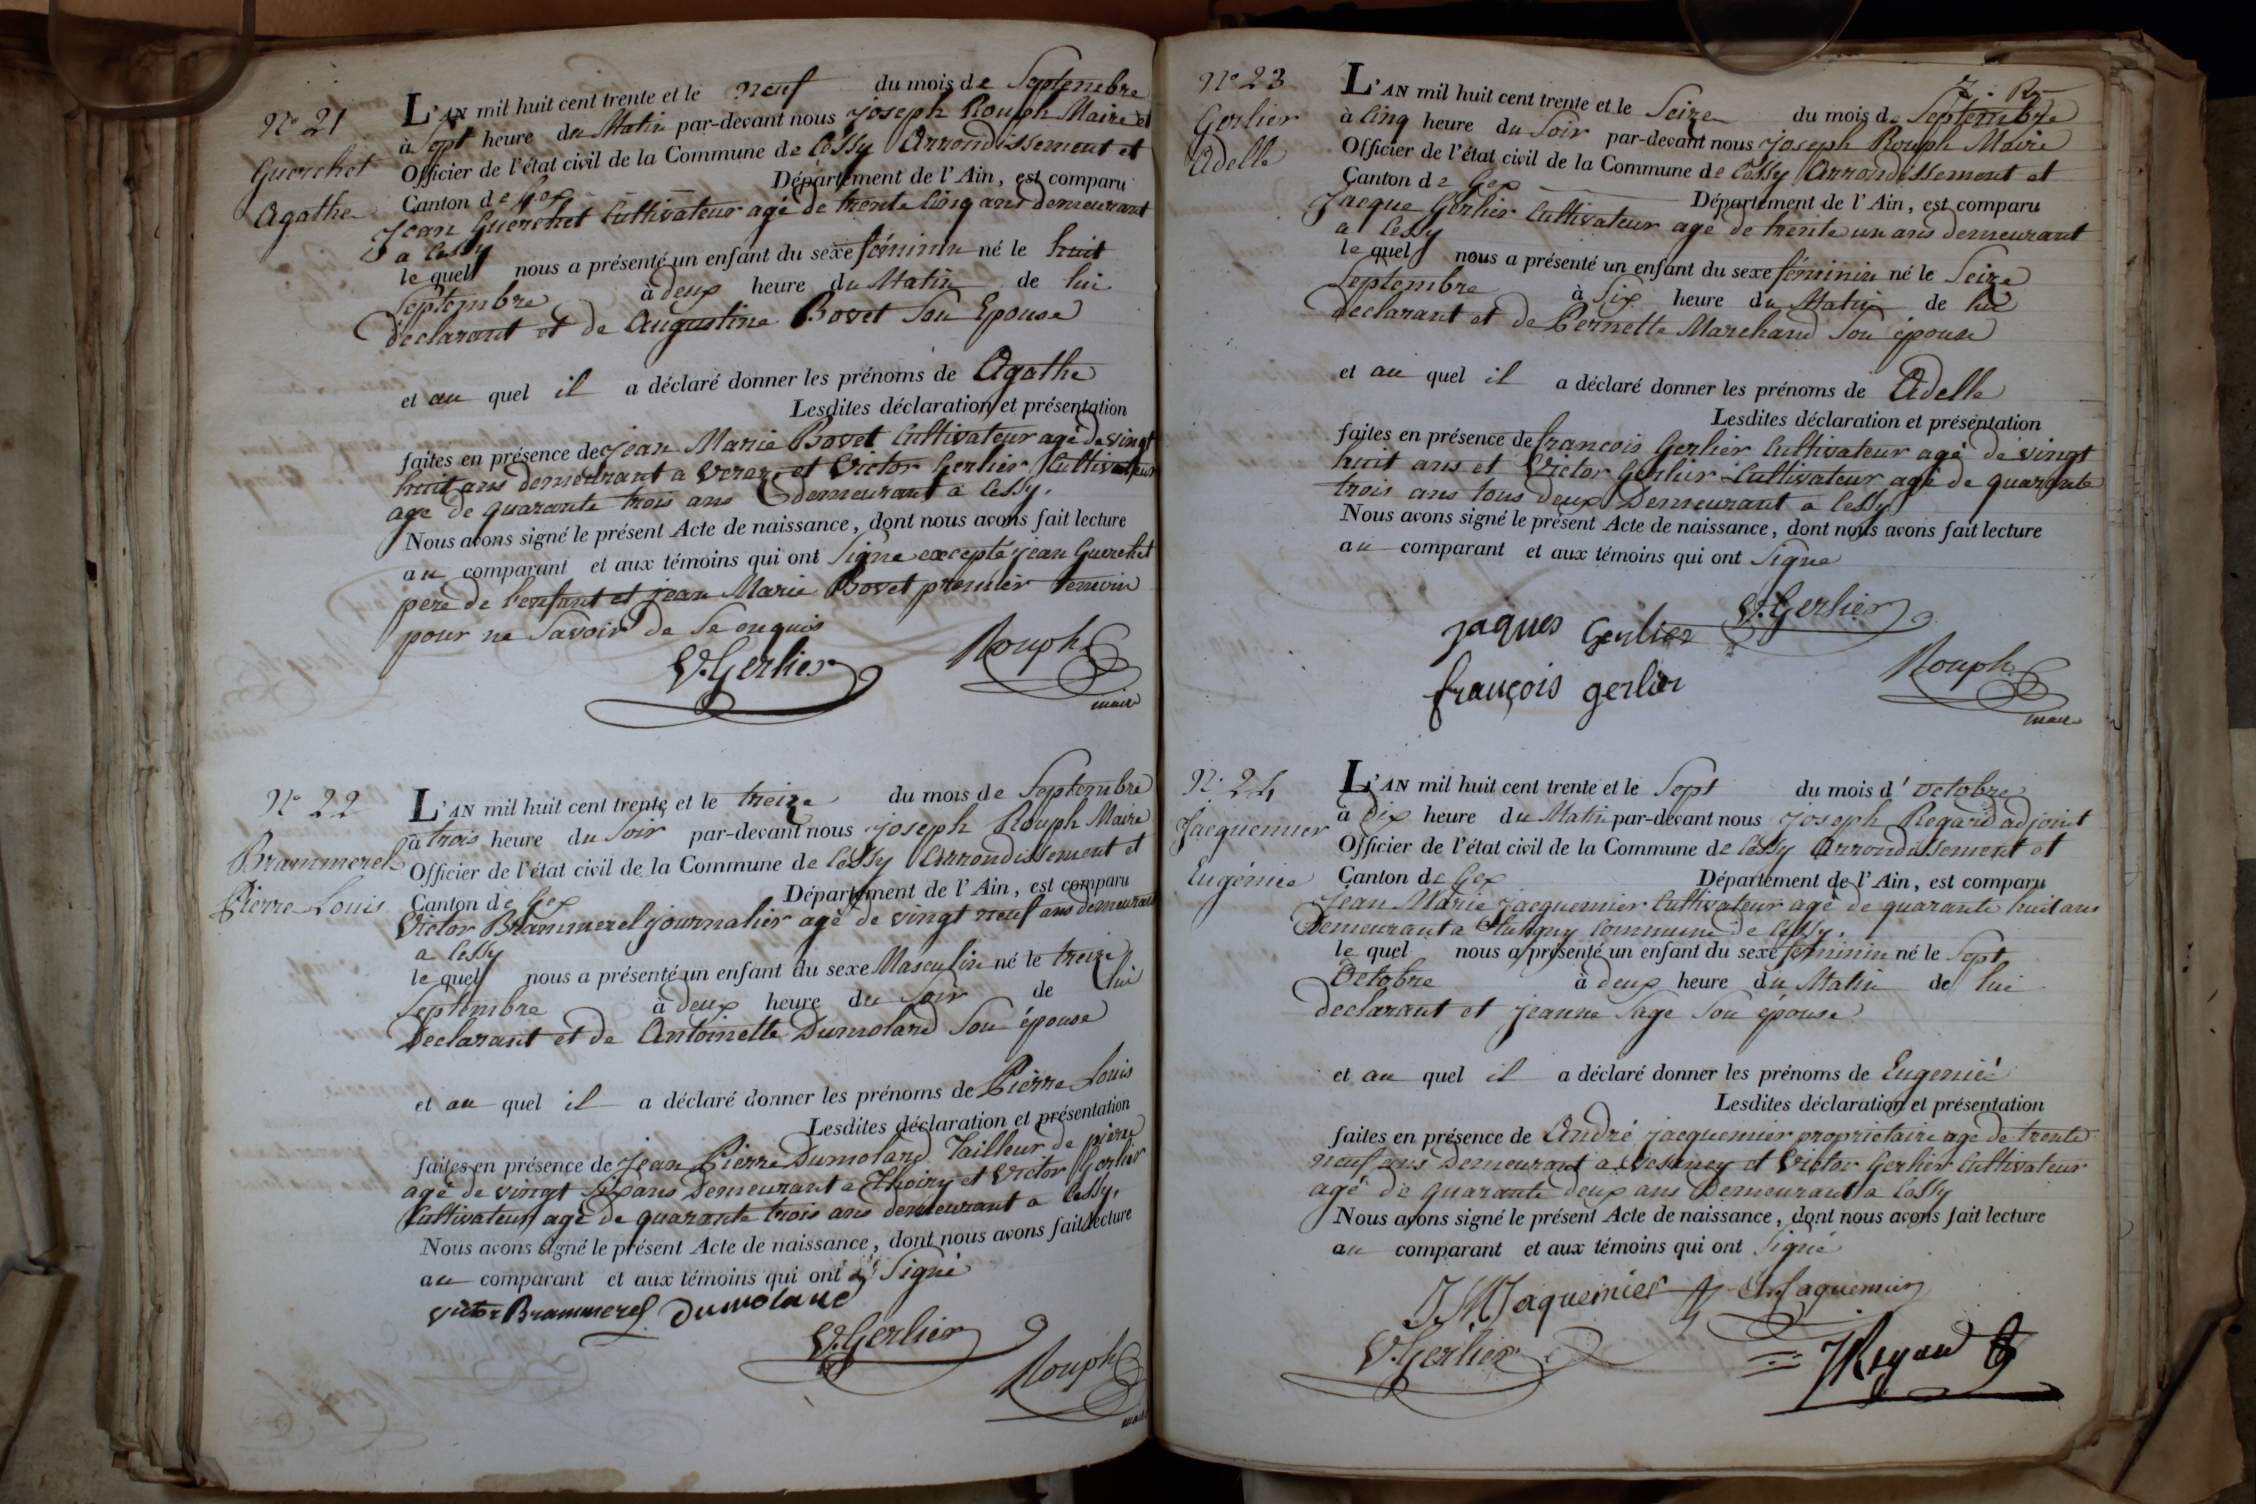 N° 21
Guerchet
Agathe
L'AN mil huit cent trente et le neuf du mois de Septembre
à Sept heure du Matin par-devant nous joseph Rouph Maire et
Officier de l'état civil de la Commune de Cessy Arrondissement et
Canton de Gex Département de l'Ain, est comparu
Jean Guerchet Cultivateur agé de trente Cinq ans demeurant
a Cessy
le quel nous a présenté un enfant du sexe féminin né le huit
Septembre à deux heure du Matin de lui
declarant et de Augustine Bovet Son Epouse
et au quel il a déclaré donner les prénoms de Agathe
Lesdites déclaration et présentation
faites en présence de jean Marie Bovet Cultivateur agé de vingt
huit ans demeurant a veraz et Victor Gerlier Cultivateur
agé de quarante trois ans demeurant a Cessy.
Nous avons signé le présent Acte de naissance, dont nous avons fait lecture
au comparant et aux témoins qui ont Signé excepté jean Guerchet
pere de l'enfant et jean Marie Bovet premier temoin
pour ne Savoir de Se enquis
V. Gerlier Rouph
maire
N° 22
Brammerel
Pierre Louis
L'AN mil huit cent trente et le treize du mois de Septembre
à trois heure du Soir par-devant nous joseph Rouph Maire
Officier de l'état civil de la Commune de Cessy Arrondissement et
Canton de Gex Département de l'Ain, est comparu
Victor Brammerel journalier agé de vingt neuf ans demeurant
a Cessy
le quel nous a présenté un enfant du sexe Masculin né le treize
Septembre à deux heure du Soir de lui
Declarant et de Antoinette Dumolard Son épouse
et au quel il a déclaré donner les prénoms de Pierre Louis
Lesdites déclaration et présentation
faites en présence de Jean Pierre Dumolard Tailleur de pierre
agé de vingt Six ans Demeurant a Thoiry et Victor Gerlier
Cultivateur agé de quarante trois ans demeurant a Cessy,
Nous avons signé le présent Acte de naissance, dont nous avons fait lecture
au comparant et aux témoins qui ont Signé
victor Brammerel Dumolard
V. Gerlier
Rouph
maire
N° 23
Gerlier
Adelle
L'AN mil huit cent trente et le Seize du mois de Septembre
à Cinq heure du Soir par-devant nous joseph Rouph Maire
Officier de l'état civil de la Commune de Cessy Arrondissement et
Canton de Gex Département de l'Ain, est comparu
Jacque Gerlier Cultivateur agé de trente un ans demeurant
a Cessy
le quel nous a présenté un enfant du sexe féminin né le Seize
Septembre à Six heure du Matin de lui
declarant et de Pernette Marchand Son épouse
et au quel il a déclaré donner les prénoms de Adelle
Lesdites déclaration et présentation
faites en présence de francois Gerlier Cultivateur agé de vingt
huit ans et Victor Gerlier Cultivateur agé de quarante
trois ans tous deux Demeurant a Cessy
Nous avons signé le présent Acte de naissance, dont nous avons fait lecture
au comparant et aux témoins qui ont Signé
jaques Gerlier V. Gerlier
françois gerlier Rouph
maire
N° 24
Jacquemier
Eugénie
L'AN mil huit cent trente et le Sept du mois d'octobre
à Dix heure du Matin par-devant nous joseph Regard adjoint
Officier de l'état civil de la Commune de Cessy Arrondissement et
Canton de Gex Département de l'Ain, est comparu
Jean Marie jacquemier Cultivateur agé de quarante huit ans
Demeurant a Commune de Cessy.
le quel nous a présenté un enfant du sexe féminin né le Sept
Octobre à deux heure du Matin de lui
declarant et jeanne Sage Son épouse
et au quel il a déclaré donner les prénoms de Eugenié
Lesdites déclaration et présentation
faites en présence de André jacquemier proprietaire agé de trente
neuf ans Demeurant a Vesancy et Victor Gerlier Cultivateur
agé de quarante deux ans Demeurant a Cessy
Nous avons signé le présent Acte de naissance, dont nous avons fait lecture
au comparant et aux témoins qui ont Signé
J. M Jaquemier
V. Gerlier JRegard